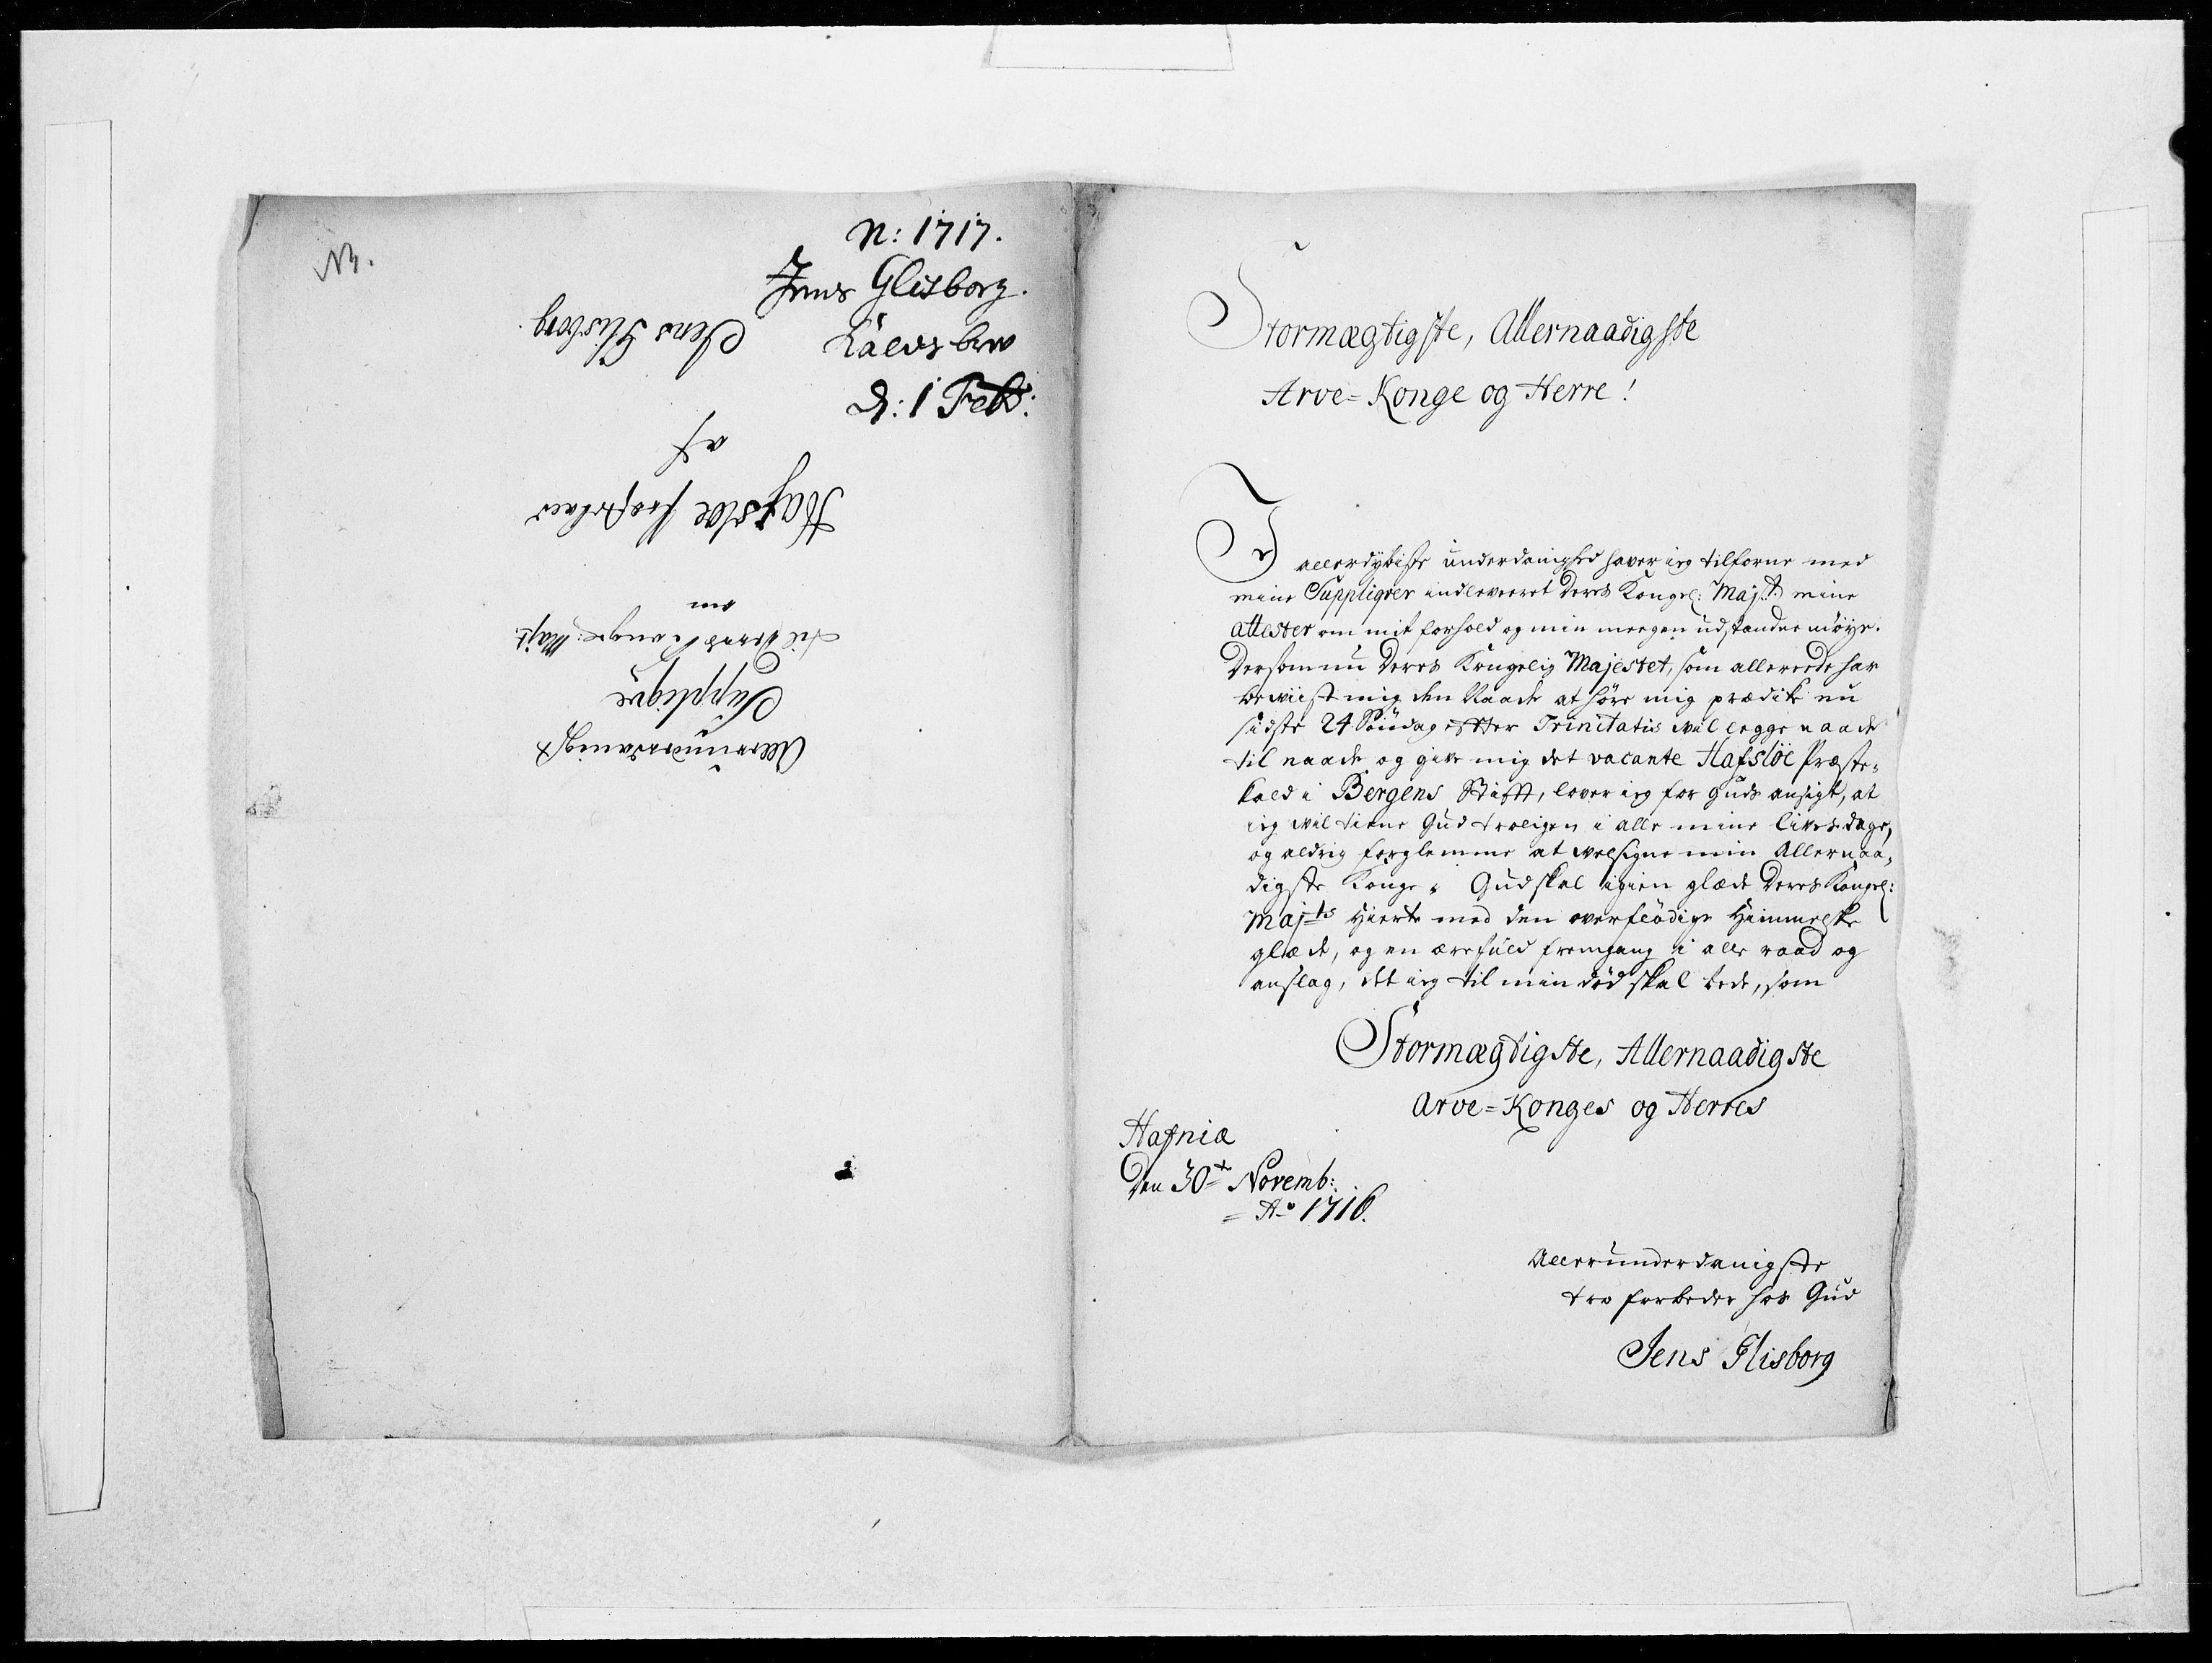 N: 1717.
Jens Glisborg.
Kaldsbrev
d: 1 Feb:
Allerunderdanigst
Supplique
til Deres Konge: Majt:
om
Hafsløe præstekald
af
Jens Glisborg.
Stormægtigste, Allernaadigste
Arve-Konge og Herre!
I allerdybeste underdanighed haver ieg tilforne med
mine Suppliqver indleveret Deres Kongel: Majt. mine
attester om mit forhold og min megen udstandne møye.
Dersom nu Deres Kongelig Majestet, som allereede har
beviist mig den Naade at høre mig prædike nu
sidste 24 Søndag effter Trinitatis vil legge naade
til naade og give mig det vacante Hafsløe Præste-
kald i Bergens Stifft, lover ieg for Guds ansigt, at
ieg vil tiene Gud troeligen i alle mine livs dage,
og aldrig forglemme at velsigne min Allernaa-
digste Konge. Gud skal igien glæde Deres Kongel:
Majts Hierte med den overflødige Himmelske
glæde, og en ærefuld fremgang i alle raad og
anslag, det ieg til min død skal bede, som
Stormægtigste, Allernaadigste
Arve-Konges og Herres
Hafniæ
Den 30te Novemb:
Ao 1716.
Allerunderdanigste
tro forbeder hos Gud
Jens Glisborg